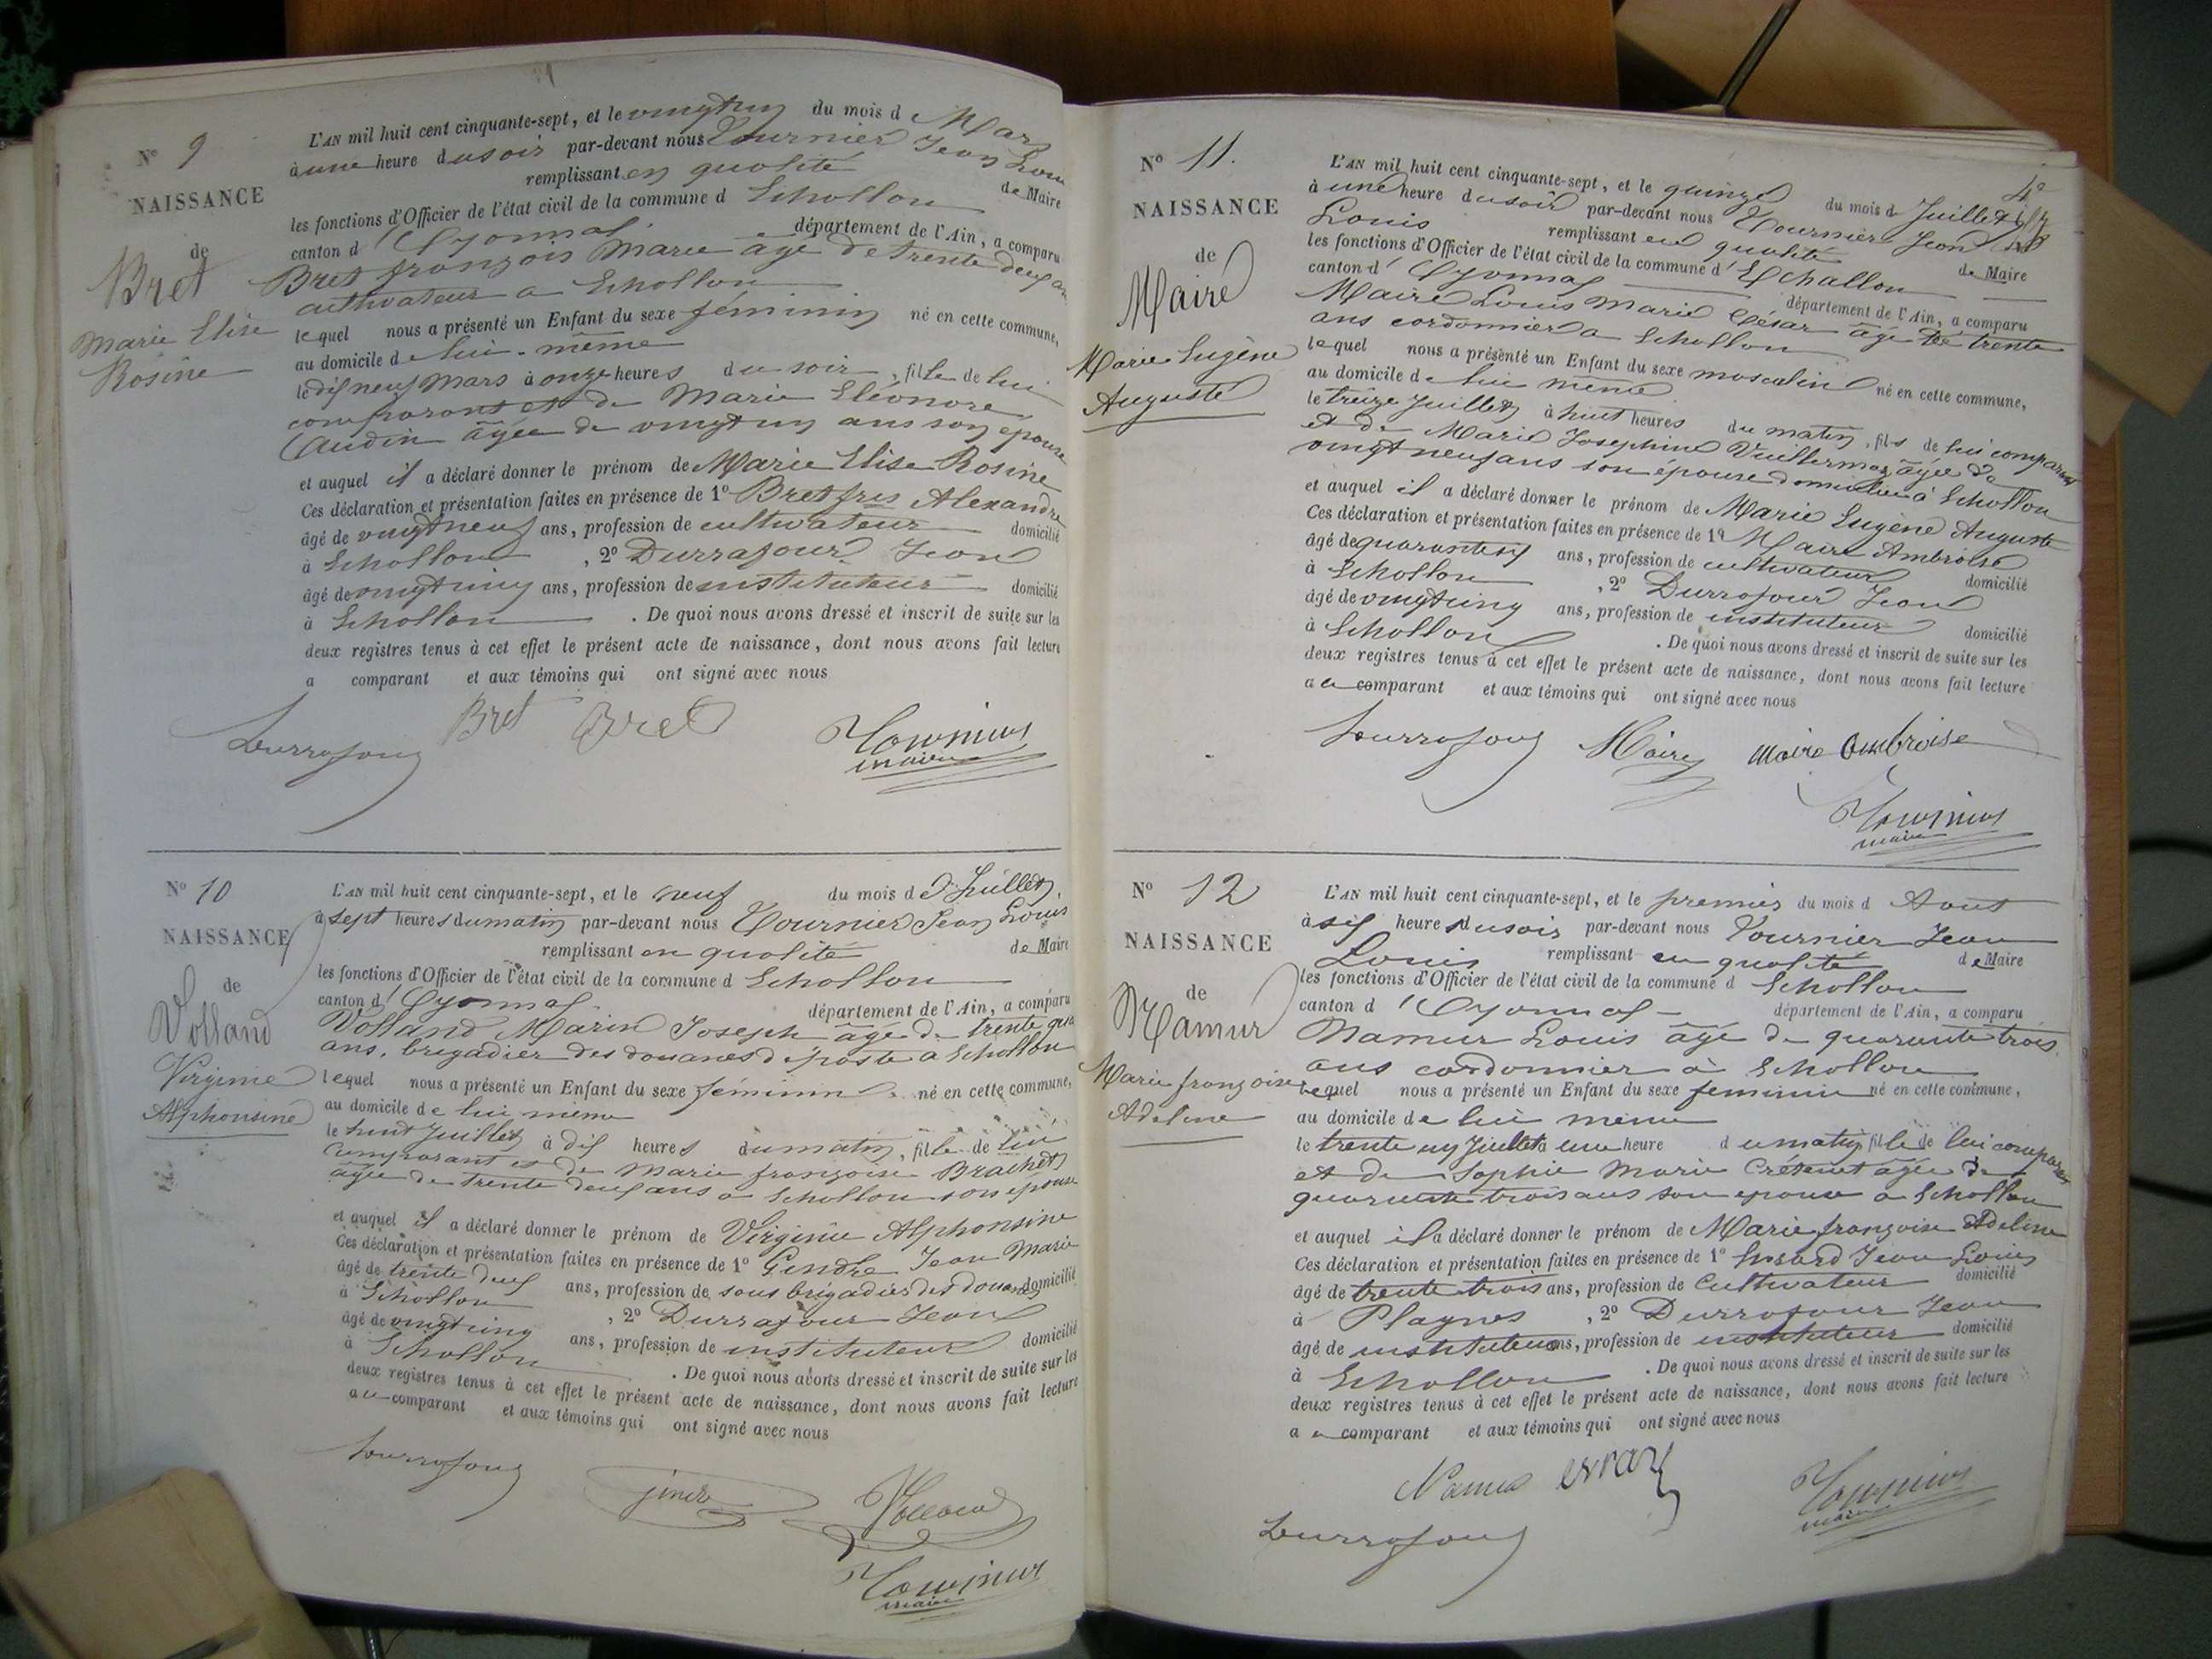 N° 9
NAISSANCE
de
Bret
Marie Elise
Rosine
L'AN mil huit cent cinquante-sept, et le vingt un du mois d Mars
à une heure du soir par-devant nous Tournier Jean Louis
remplissant en qualité de Maire
les fonctions d'Officier de l'état civil de la commune d Echallon
canton d'Oyonnax département de l'Ain, a comparu
Bret françois Marie âgé de trente deux ans
cultivateur a Echallon
lequel nous a présenté un Enfant du sexe féminin né en cette commune,
au domicile de lui-même
le dix neuf mars à onze heures du soir, fille de lui
comparant et de Marie Eléonore
Caudin âgée de vingt un ans son epouse
et auquel il a déclaré donner le prénom de Marie Elise Rosine
Ces déclaration et présentation faites en présence de 1° Bret frs Alexandre
âgé de vingt neuf ans, profession de cultivateur domicilié
à Echallon, 2° Durrafour Jean
âgé de vingt cinq ans, profession de instituteur domicilié
à Echallon. De quoi nous avons dressé et inscrit de suite sur les
deux registres tenus à cet effet le présent acte de naissance, dont nous avons fait lecture
a comparant et aux témoins qui ont signé avec nous
Durrafour Bret Bret Tournier
maire
N° 10
NAISSANCE
de
Volland
Virginie
Alphonsine
L'AN mil huit cent cinquante-sept, et le neuf du mois d Juillet,
à sept heures du matin par-devant nous Tournier Jean Louis
remplissant en qualité de Maire
les fonctions d'Officier de l'état civil de la commune d Echallon
canton d'Oyonnax département de l'Ain, a comparu
Volland Marin Joseph âgé de trente
ans, brigadier des douanes déposte a Echallon
lequel nous a présenté un Enfant du sexe féminin né en cette commune,
au domicile de lui même
le huit Juillet à dix heures du matin, fille de lui
comparant et de Marie françoise Brachet
âgée de trente deux ans a Echallon son epouse
et auquel il a déclaré donner le prénom de Virginie Alphonsine
Ces déclaration et présentation faites en présence de 1° Gendre Jean Marie
âgé de trente deux ans, profession de sous brigadier des douanes domicilié
à Echallon, 2° Durrafour Jean
âgé de vingt cinq ans, profession de instituteur domicilié
à Echallon. De quoi nous avons dressé et inscrit de suite sur les
deux registres tenus à cet effet le présent acte de naissance, dont nous avons fait lecture
au comparant et aux témoins qui ont signé avec nous
Durrafour Volland
Tournier
maire
N° 11.
NAISSANCE
de
Maire
Marie Eugène
Auguste
L'AN mil huit cent cinquante-sept, et le quinze du mois de Juillet
à une heure du soir par-devant nous Tournier Jean
Louis remplissant en qualité de Maire
les fonctions d'Officier de l'état civil de la commune d'Echallon
canton d'Oyonnax département de l'Ain, a comparu
Maire Louis Marie César âgé de trente
ans cordonnier a Echallon
lequel nous a présenté un Enfant du sexe masculin né en cette commune,
au domicile de lui même
le treize Juillet à huit heures du matin, fils de lui comparant
et de Marie Josephine Vuillermoz âgée de
vingt neuf ans son épouse domiciliée à Echallon
et auquel il a déclaré donner le prénom de Marie Eugène Auguste
Ces déclaration et présentation faites en présence de 1° Maire Ambroise
âgé de quarante six ans, profession de cultivateur domicilié
à Echallon, 2° Durrafour Jean
âgé de vingt cinq ans, profession de instituteur domicilié
à Echallon. De quoi nous avons dressé et inscrit de suite sur les
deux registres tenus à cet effet le présent acte de naissance, dont nous avons fait lecture
au comparant et aux témoins qui ont signé avec nous
Durrafour Maire Maire Ambroise
Tournier
maire
N° 12
NAISSANCE
de
Namur
Marie françoise
Adeline
L'AN mil huit cent cinquante-sept, et le premier du mois d Aout
à six heures du soir par-devant nous Tournier Jean
Louis remplissant en qualité de Maire
les fonctions d'Officier de l'état civil de la commune d Echallon
canton d'Oyonnax département de l'Ain, a comparu
Namur Louis âgé de quarante trois
ans cordonnier à Echallon
lequel nous a présenté un Enfant du sexe feminin né en cette commune,
au domicile de lui même
le trente un Juillet à une heure du matin, fille de lui comparant
et de Sophie Marie Crétenet âgée de
quarante trois ans son epouse a Echallon
et auquel il a déclaré donner le prénom de Marie françoise Adeline
Ces déclaration et présentation faites en présence de 1° Jean Louis
âgé de trente trois ans, profession de Cultivateur domicilié
à Plagnes, 2° Durrafour Jean
âgé de instituteur ans, profession de instituteur domicilié
à Echallon. De quoi nous avons dressé et inscrit de suite sur les
deux registres tenus à cet effet le présent acte de naissance, dont nous avons fait lecture
au comparant et aux témoins qui ont signé avec nous
Namur Tournier
maire
Durrafour